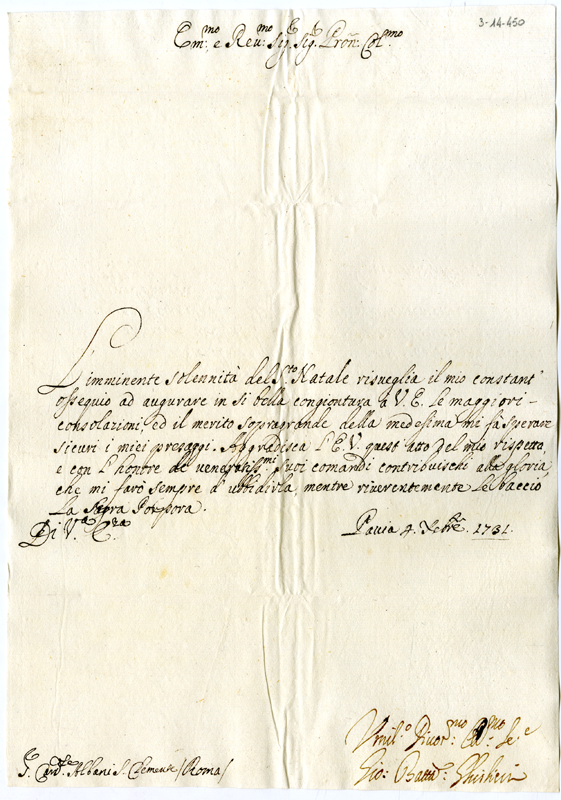 3-14-450
Em:mo e Reu:mo Sig.r Sig.r Pron: Col:mo
L'imminente solennità del S.to Natale risueglia il mio constant'
ossequio ad augurare in si bella congiontura à V. E. le maggiori
consolazioni, ed il merito sopragrande della medesima mi fà sperare
sicuri i miei presaggi. Aggradisca l'E. V. quest'atto del mio rispetto,
e con l'honore de' veneratiss:mi suoi comandi contribuischi alla gloria,
che mi farò sempre d'ubbidirla, mentre riuerentemente le baccio
la Sagra Porpora.
Di V.a E.za
Pauia 4. Xbre. 1731.
Vmil:o Diuot:mo Se:e
Gio: Batta:
S.r Card.le Albani S. Clemente / Roma /